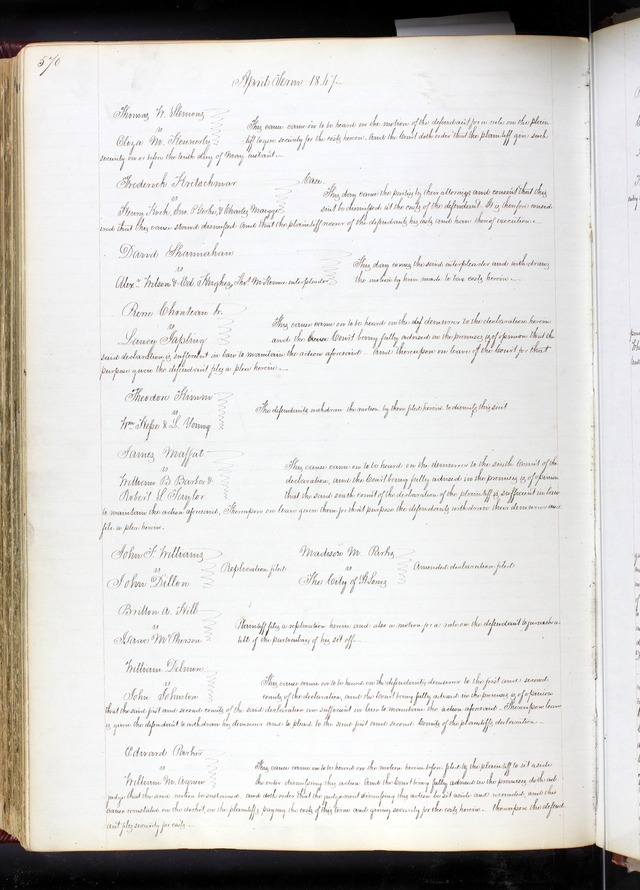 570
April Term 1847
Thomas W. Slemons
vs
Cloza M. Kennerly
This cause came on to be heard on the motion of the defendant for a rule on the plain
tiff to give security for the costs herein. And the Court doth order that the plaintiff give such
security on or before the tenth day of May instant.
Frederick Kretschmar
vs
Case
This day came the parties by their attorneys and consent that this
suit be dismissed at the costs of the defendant. It is therefore consid
ered that this cause stand dismissed and that the plaintiff recover of the defendants his costs and have thereof execution.
David Shannahan
vs
Alexr Wilson & Ed. Hughes, Thos. interpleader
This day comes the said interpleader and withdraws
the motion by him made to tax costs herein
Rene Chouteau Jr.
vs
This cause came on to be heard on the def demurrer to the declaration herein
and the Court being fully advised in the premises is of opinion that the
said declaration is sufficient in law to maintain the action aforesaid. And thereupon on leave of the Court for that
purpose given the defendant files a plea herein.
Theodore
vs
Wm & L. Young
The defendants withdraw the motion by them filed herein to dismiss this suit
James Moffat
vs
William B Barber &
Robert L Taylor
This cause came on to be heard on the demurrer to the sixth Count of the
declaration, and the Court being fully advised in the premises is of opinion
that the said sixth count of the declaration of the plaintiff is sufficient in law
to maintain the action aforesaid, Thereupon on leave given them for that purpose the defendants withdraw their demurrer and
file a plea herein.
John F. Williams
vs
John Dillon
Replication filed
Madison M. Parks
vs
The City of St Louis
Amended declaration filed
Britton A. Hill
vs
Isaac McPherson
Plaintiff files a replication herein and also a motion for a rule on the defendant to furnish a
bill of the particulars of his set off
William
vs
John Johnston
This cause came on to be heard on the defendants demurrer to the first and second
counts of the declaration, and the Court being fully advised in the premises is of opinion
that the said first and second counts of the said declaration are sufficient in law to maintain the action aforesaid. Thereupon leave
is given the defendant to withdraw his demurrer and to plead to the said first and second Counts of the plaintiffs declaration.
Edward Parker
vs
William M. Agnew
This cause came on to be heard on the motion herein before filed by the plaintiff to set aside
the order dismissing this action. And the Court being fully advised in the premises doth ad
judge that the said motion be sustained, and doth order that the judgement dismissing this action be set aside and rescinded, and this
cause reinstated on the docket, on the plaintiffs paying the costs of this term and giving security for the costs herein. thereupon the defend
ant files security for costs.